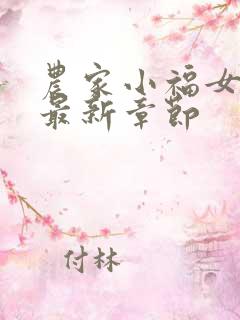 農家小福女
最新章節
付林